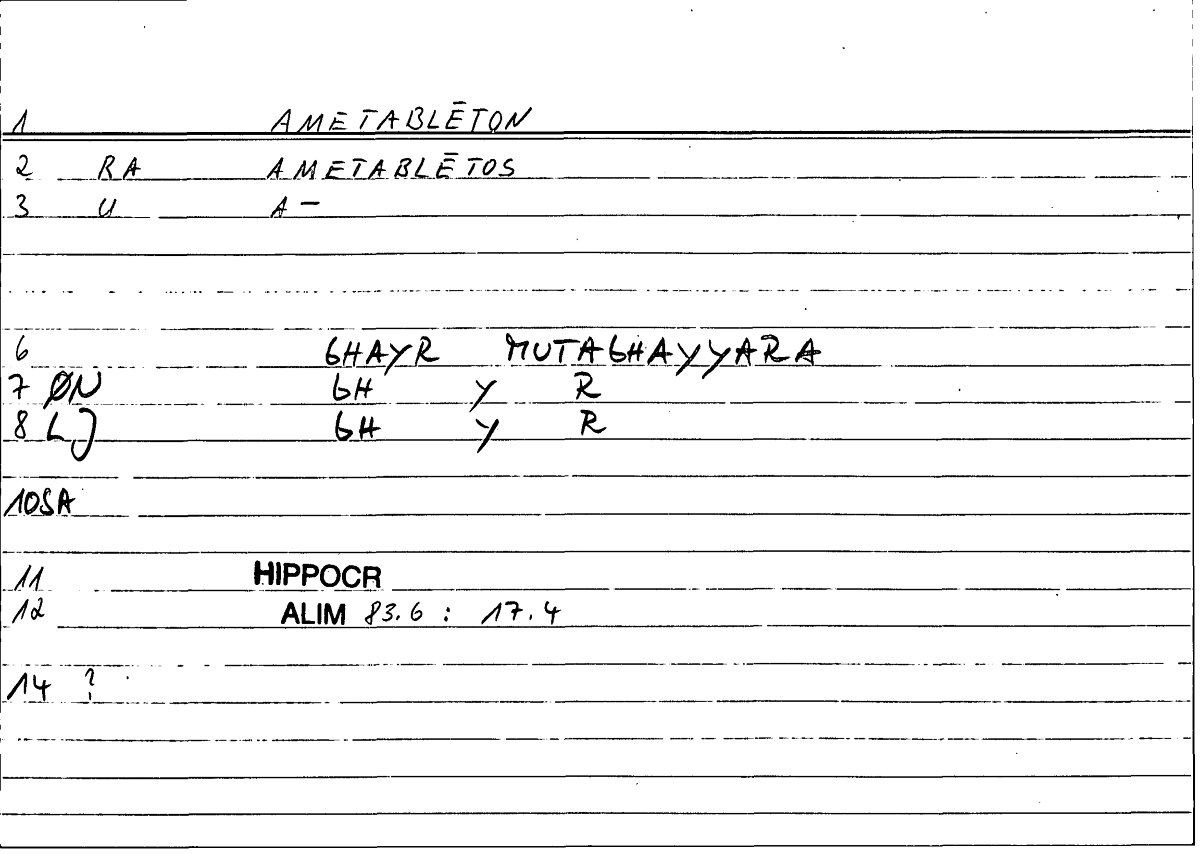 1 AMETABLĒTON
2 RA AMETABLĒTOS
3 U A-
6 GHAYR MUTAGHAYYARA
7 ØN GH Y R
8 LJ GH Y R
10SA
11 HIPPOCR
12 ALIM 83.6 : 17.4
14 ?